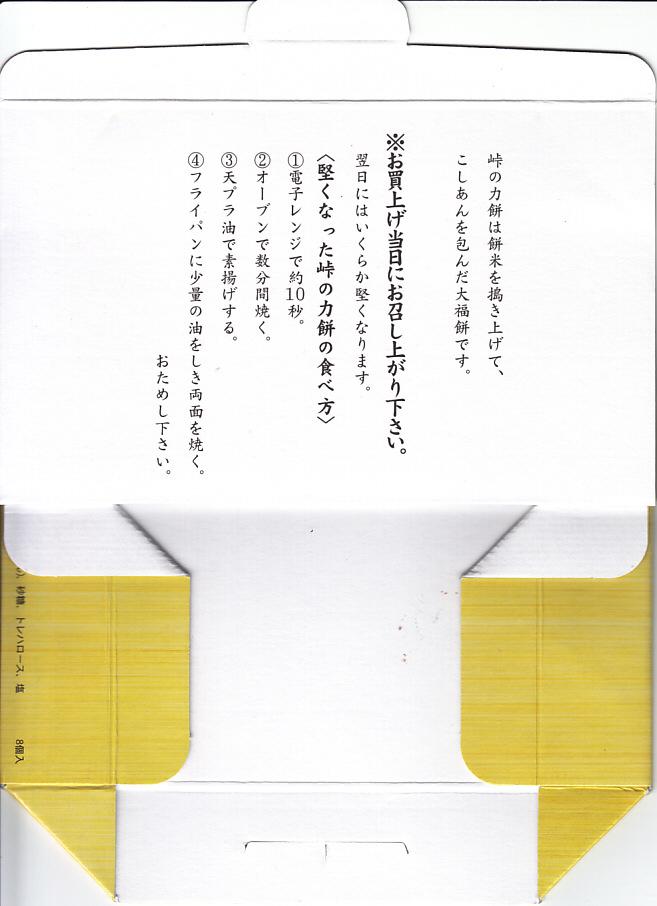 峠の力餅は餅米を搗き上げて、
こしあんを包んだ大福餅です。
※お買上げ当日にお召し上がり下さい。
翌日にはいくらか堅くなります。
〈堅くなった峠の力餅の食べ方〉
①電子レンジで約10秒。
②オーブンで数分間焼く。
③天プラ油で素揚げする。
④フライパンに少量の油をしき両面を焼く。
おためし下さい。
、砂糖、トレハロース、塩
8個入